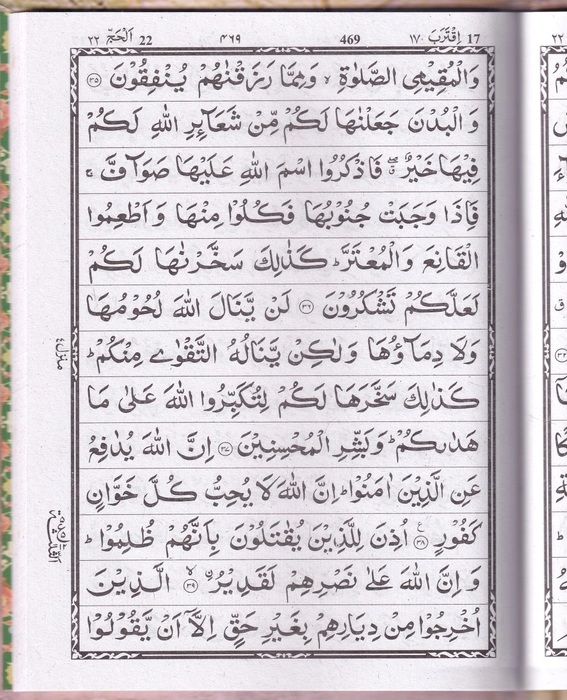 17 اِقْتَرَبَ ١٧ 469 ۴۶۹ 22 اَلْحَجّ ٢٢
وَالْمُقِيْمِى الصَّلٰوةِ ۙ وَمِمَّا رَزَقْنٰهُمْ يُنْفِقُوْنَ ﴿۳۵﴾
وَ الْبُدْنَ جَعَلْنٰهَا لَكُمْ مِّنْ شَعَآئِرِ اللّٰهِ لَكُمْ
فِيْهَا خَيْرٌ ۖ فَاذْكُرُوا اسْمَ اللّٰهِ عَلَيْهَا صَوَآفَّ ۚ
فَاِذَا وَجَبَتْ جُنُوْبُهَا فَكُلُوْا مِنْهَا وَ اَطْعِمُوا
الْقَانِعَ وَالْمُعْتَرَّ ؕ كَذٰلِكَ سَخَّرْنٰهَا لَكُمْ
لَعَلَّكُمْ تَشْكُرُوْنَ ﴿۳۶﴾ لَنْ يَّنَالَ اللّٰهَ لُحُوْمُهَا
وَلَا دِمَآؤُهَا وَلٰكِنْ يَّنَالُهُ التَّقْوٰى مِنْكُمْ ؕ
كَذٰلِكَ سَخَّرَهَا لَكُمْ لِتُكَبِّرُوا اللّٰهَ عَلٰى مَا
هَدٰىكُمْ ؕ وَبَشِّرِ الْمُحْسِنِيْنَ ﴿۳۷﴾ اِنَّ اللّٰهَ يُدٰفِعُ
عَنِ الَّذِيْنَ اٰمَنُوْا ؕ اِنَّ اللّٰهَ لَا يُحِبُّ كُلَّ خَوَّانٍ
كَفُوْرٍ ﴿۳۸﴾ اُذِنَ لِلَّذِيْنَ يُقٰتَلُوْنَ بِاَنَّهُمْ ظُلِمُوْا ؕ
وَ اِنَّ اللّٰهَ عَلٰى نَصْرِهِمْ لَقَدِيْرُ ﴿۳۹﴾ ۙ الَّذِيْنَ
اُخْرِجُوْا مِنْ دِيَارِهِمْ بِغَيْرِ حَقٍّ اِلَّاۤ اَنْ يَّقُوْلُوْا
منزل ۴